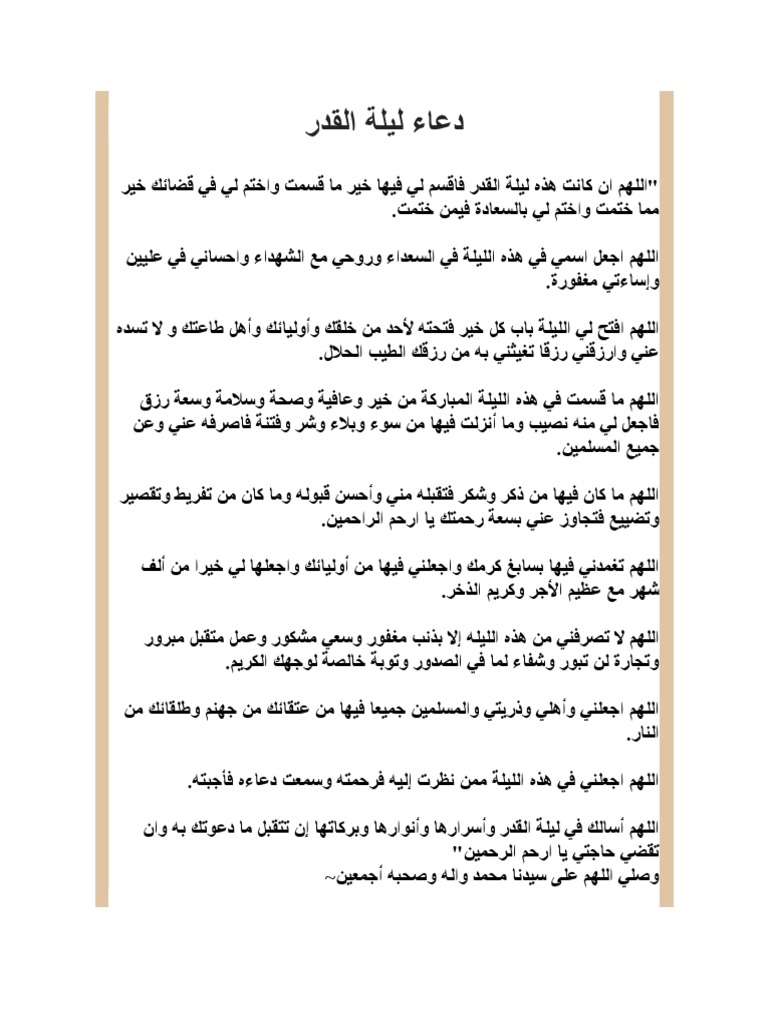 دعاء ليلة القدر
"اللهم ان كانت هذه ليلة القدر فاقسم لي فيها خير ما قسمت واختم لي في قضائك خير
مما ختمت واختم لي بالسعادة فيمن ختمت.
اللهم اجعل اسمي في هذه الليلة في السعداء وروحي مع الشهداء واحساني في عليين
وإساءتي مغفورة.
اللهم افتح لي الليلة باب كل خير فتحته لأحد من خلقك وأوليائك وأهل طاعتك و لا تسده
عني وارزقني رزقا تغيثني به من رزقك الطيب الحلال.
اللهم ما قسمت في هذه الليلة المباركة من خير وعافية وصحة وسلامة وسعة رزق
فاجعل لي منه نصيب وما أنزلت فيها من سوء وبلاء وشر وفتنة فاصرفه عني وعن
جميع المسلمين.
اللهم ما كان فيها من ذكر وشكر فتقبله مني وأحسن قبوله وما كان من تفريط وتقصير
وتضييع فتجاوز عني بسعة رحمتك يا ارحم الراحمين.
اللهم تغمدني فيها بسابغ كرمك واجعلني فيها من أوليائك واجعلها لي خيرا من ألف
شهر مع عظيم الأجر وكريم الذخر.
اللهم لا تصرفني من هذه الليله إلا بذنب مغفور وسعي مشكور وعمل متقبل مبرور
وتجارة لن تبور وشفاء لما في الصدور وتوبة خالصة لوجهك الكريم.
اللهم اجعلني وأهلي وذريتي والمسلمين جميعا فيها من عتقائك من جهنم وطلقائك من
النار.
اللهم اجعلني في هذه الليلة ممن نظرت إليه فرحمته وسمعت دعاءه فأجبته.
اللهم أسالك في ليلة القدر وأسرارها وأنوارها وبركاتها إن تتقبل ما دعوتك به وان
تقضي حاجتي يا ارحم الرحمين"
وصلي اللهم على سيدنا محمد واله وصحبه أجمعين~